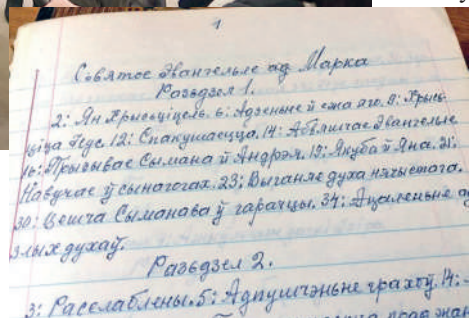 1
Сьвятое Эвангельле ад Марка
Разьдзел 1.
2: Ян Хрысьціцель. 6: Адзеньне й ежа яго. 9: Хрысь-
ціцца Ісус. 12: Спакушаецца. 14: Абвяшчае Эвангельле
16: Прызывае Сымана й Андрэя. 19: Якуба й Яна. 21:
Навучае ў сынагогах. 23: Выганяе духа нячыстага.
30: Цешча Сыманава ў гарачцы. 34: Ацаленьне ад
злых духаў.
Разьдзел 2.
3: Расслаблены. 5: Адпушчэньне грахоў. 14: -